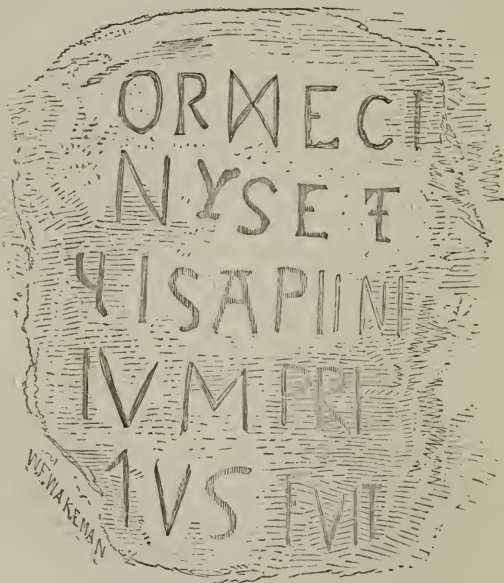 ORMECI
NYSE Ŧ
ЧISAPIINI
IVM PRI
1VS FVIT
W.F. WAKEMAN